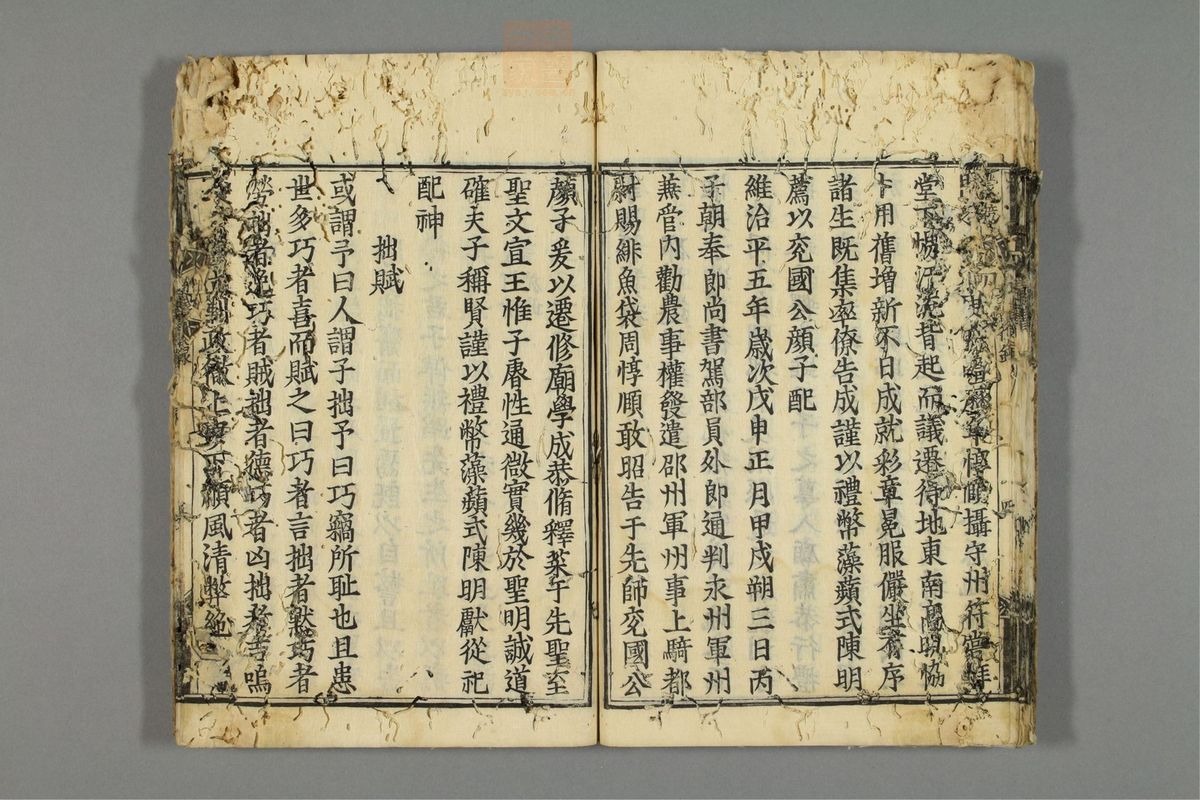 惇儒攝守州符嘗拜
堂下惕汗流背起而議遷得地東南高明協
卜用舊增新不日成就彩章冕服儼坐有序
諸生既集率僚告成謹以禮幣藻蘋式陳明
薦以兖國公顔子配
維治平五年歲次戊申正月甲戌朔三日丙
子朝奉郎尚書駕部員外郎通判永州軍州
蕪管内勸農事權發遣邵州軍州事上騎都
尉賜緋魚袋周惇頤敢昭告于先師兖國公
顔子爰以遷修廟學成恭脩釋菜于先聖至
聖文宣王惟子睿性通微實幾於聖明誠道
確夫子稱賢謹以禮幣藻蘋式陳明獻從祀
配神
拙賦
或謂予曰人謂子拙予曰巧竊所耻也且患
世多巧者喜而賦之曰巧者言拙者默巧者
勞拙者逸巧者賊拙者德巧者凶拙者吉嗚
刑政徹上安下順風清弊絶